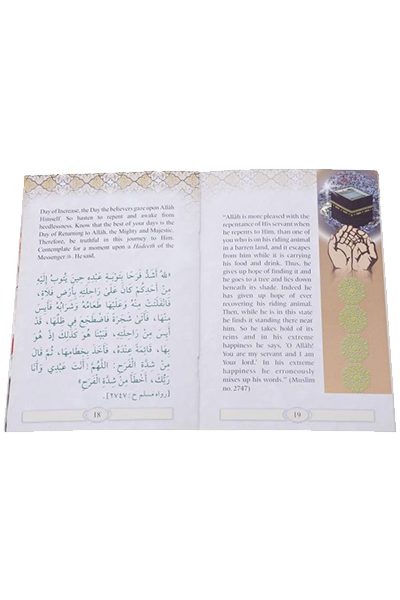 Day of Increase, the Day the believers gaze upon Allâh
Himself. So hasten to repent and awake from
heedlessness. Know that the best of your days is the
Day of Returning to Allâh, the Mighty and Majestic.
Therefore, be truthful in this journey to Him.
Contemplate for a moment upon a Hadeeth of the
Messenger ﷺ. He said,
«للهُ أَشَدُّ فَرَحًا بِتَوْبَةِ عَبْدِهِ حِينَ يَتُوبُ إِلَيْهِ
مِنْ أَحَدِكُمْ كَانَ عَلَى رَاحِلَتِهِ بِأَرْضِ فَلَاةٍ،
فَانْفَلَتَتْ مِنْهُ وَعَلَيْهَا طَعَامُهُ وَشَرَابُهُ فَأَيِسَ
مِنْهَا، فَأَتَى شَجَرَةً فَاضْطَجَعَ فِي ظِلِّهَا، قَدْ
أَيِسَ مِنْ رَاحِلَتِهِ، فَبَيْنَا هُوَ كَذَلِكَ إِذْ هُوَ
بِهَا، قَائِمَةً عِنْدَهُ، فَأَخَذَ بِخِطَامِهَا، ثُمَّ قَالَ
مِنْ شِدَّةِ الْفَرَحِ: اللَّهُمَّ أَنْتَ عَبْدِي وَأَنَا
رَبُّكَ، أَخْطَأَ مِنْ شِدَّةِ الْفَرَحِ»
(رواه مسلم ح: ٢٧٤٧).
18
"Allâh is more pleased with the
repentance of His servant when
he repents to Him, than one of
you who is on his riding animal
in a barren land, and it escapes
from him while it is carrying
his food and drink. Thus, he
gives up hope of finding it and
he goes to a tree and lies down
beneath its shade. Indeed he
has given up hope of ever
recovering his riding animal.
Then, while he is in this state
he finds it standing there near
him. So he takes hold of its
reins and in his extreme
happiness he says, 'O Allâh!
You are my servant and I am
Your lord.' In his extreme
happiness he erroneously
mixes up his words." (Muslim
no. 2747)
19